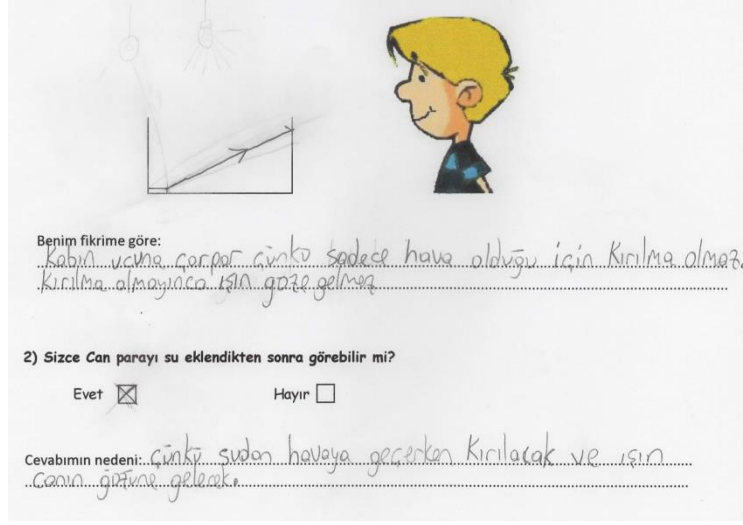 Benim fikrime göre:
Kabın ucuna çarpar çünkü sadece hava olduğu için kırılma olmaz.
Kırılma olmayınca ışın göze gelmez
2) Sizce Can parayı su eklendikten sonra görebilir mi?
Evet Hayır
Cevabımın nedeni: Çünkü sudan havaya geçerken kırılacak ve ışın
canın gözüne gelecek.